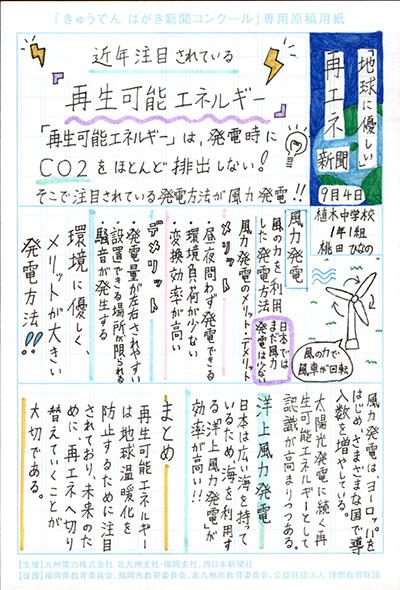 「きゅうでん はがき新聞コンクール」専用原稿用紙
「地球に優しい」
再エネ
新聞
9月4日
植木中学校
1年1組
桃田 ひなの
近年注目されている
『再生可能エネルギー』
「再生可能エネルギー」は、発電時に
CO2をほとんど排出しない!
そこで注目されている発電方法が風力発電!!
風力発電
風の力を利用
した発電方法
日本では
まだ風力
発電は少ない
風力発電のメリット・デメリット
メリット
・昼夜問わず発電できる
・環境負荷が少ない
・変換効率が高い
デメリット
・発電量が左右されやすい
・設置できる場所が限られる
・騒音が発生する
環境に優しく、
メリットが大きい
発電方法!!
風の力で
風車が回転
風力発電は、ヨーロッパを
はじめ、さまざまな国で導
入数を増やしている。
太陽光発電に続く再
生可能エネルギーとして
認識が高まりつつある。
洋上風力発電
日本は広い海を持って
いるため、海を利用す
る「洋上風力発電」が
効率が高い!!
まとめ
再生可能エネルギー
は地球温暖化を
防止するために注目
されており、未来のた
めに、再エネへ切り
替えていくことが
大切である。
【主催】九州電力株式会社 北九州支社・福岡支社、西日本新聞社
【後援】福岡県教育委員会、福岡市教育委員会、北九州市教育委員会、公益財団法人 理想教育財団